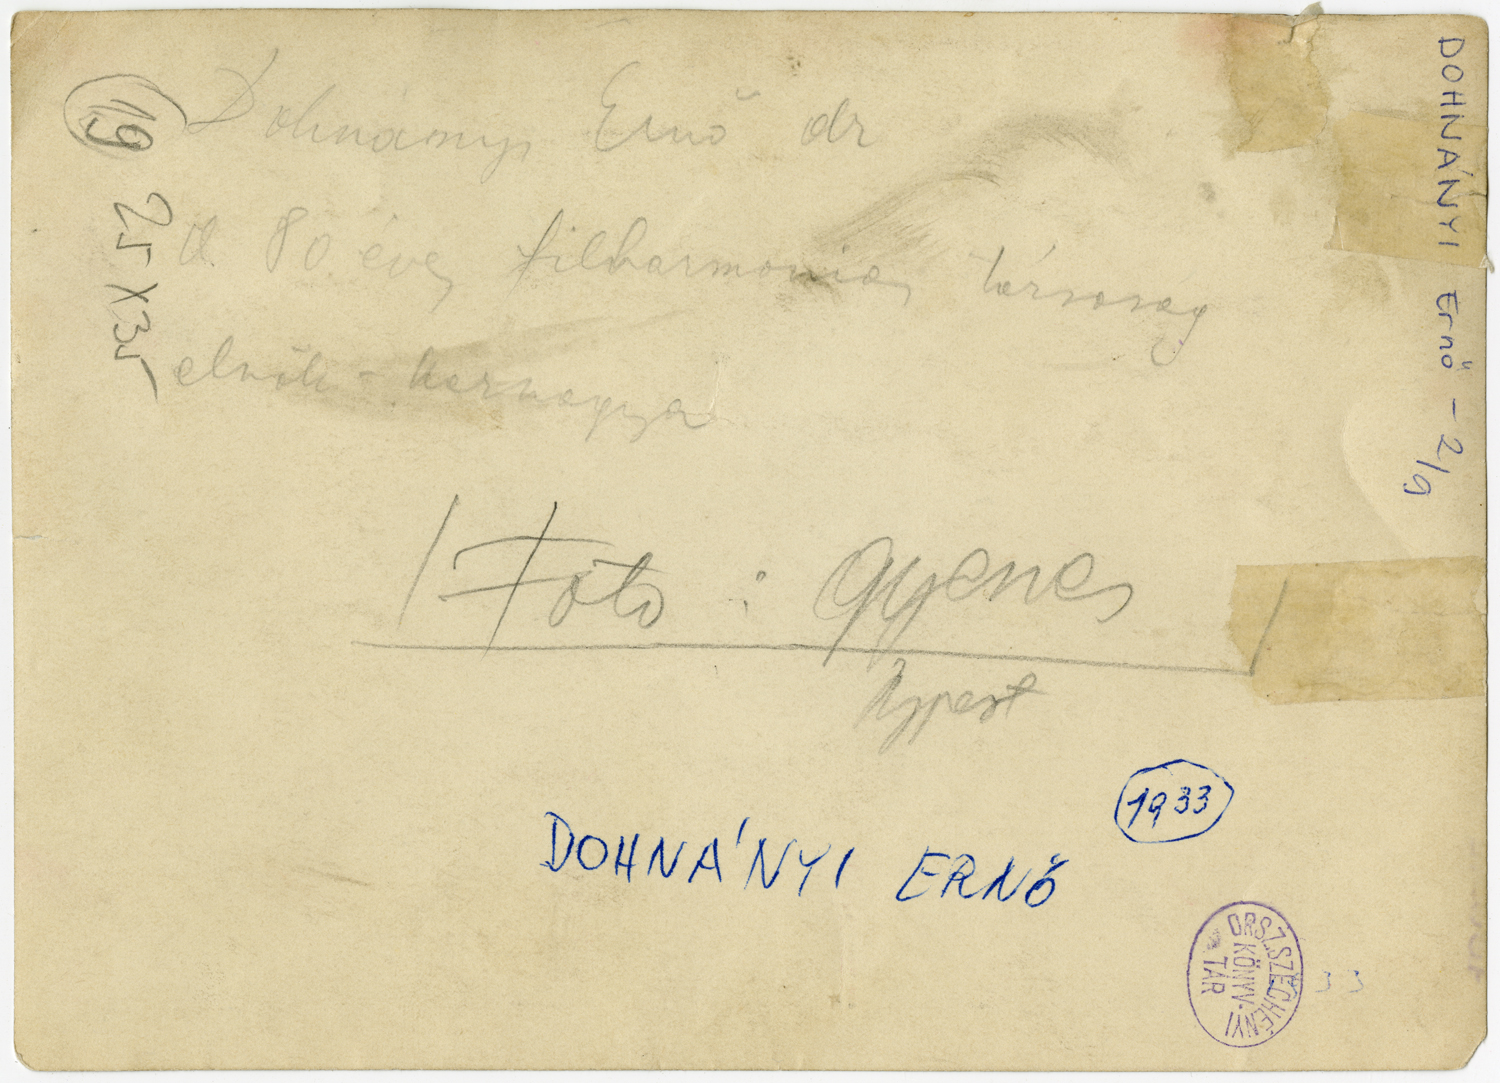 Dohnányi Ernő dr
a 80 éves filharmoniai társaság
elnök-karnagya
/ Foto : Gyenes /
Ujpest
1933
DOHNÁNYI ERNŐ
19
25 X 35
DOHNÁNYI Ernő - 2/9
ORSZ. SZÉCHÉNYI
KÖNYV-
TÁR
33